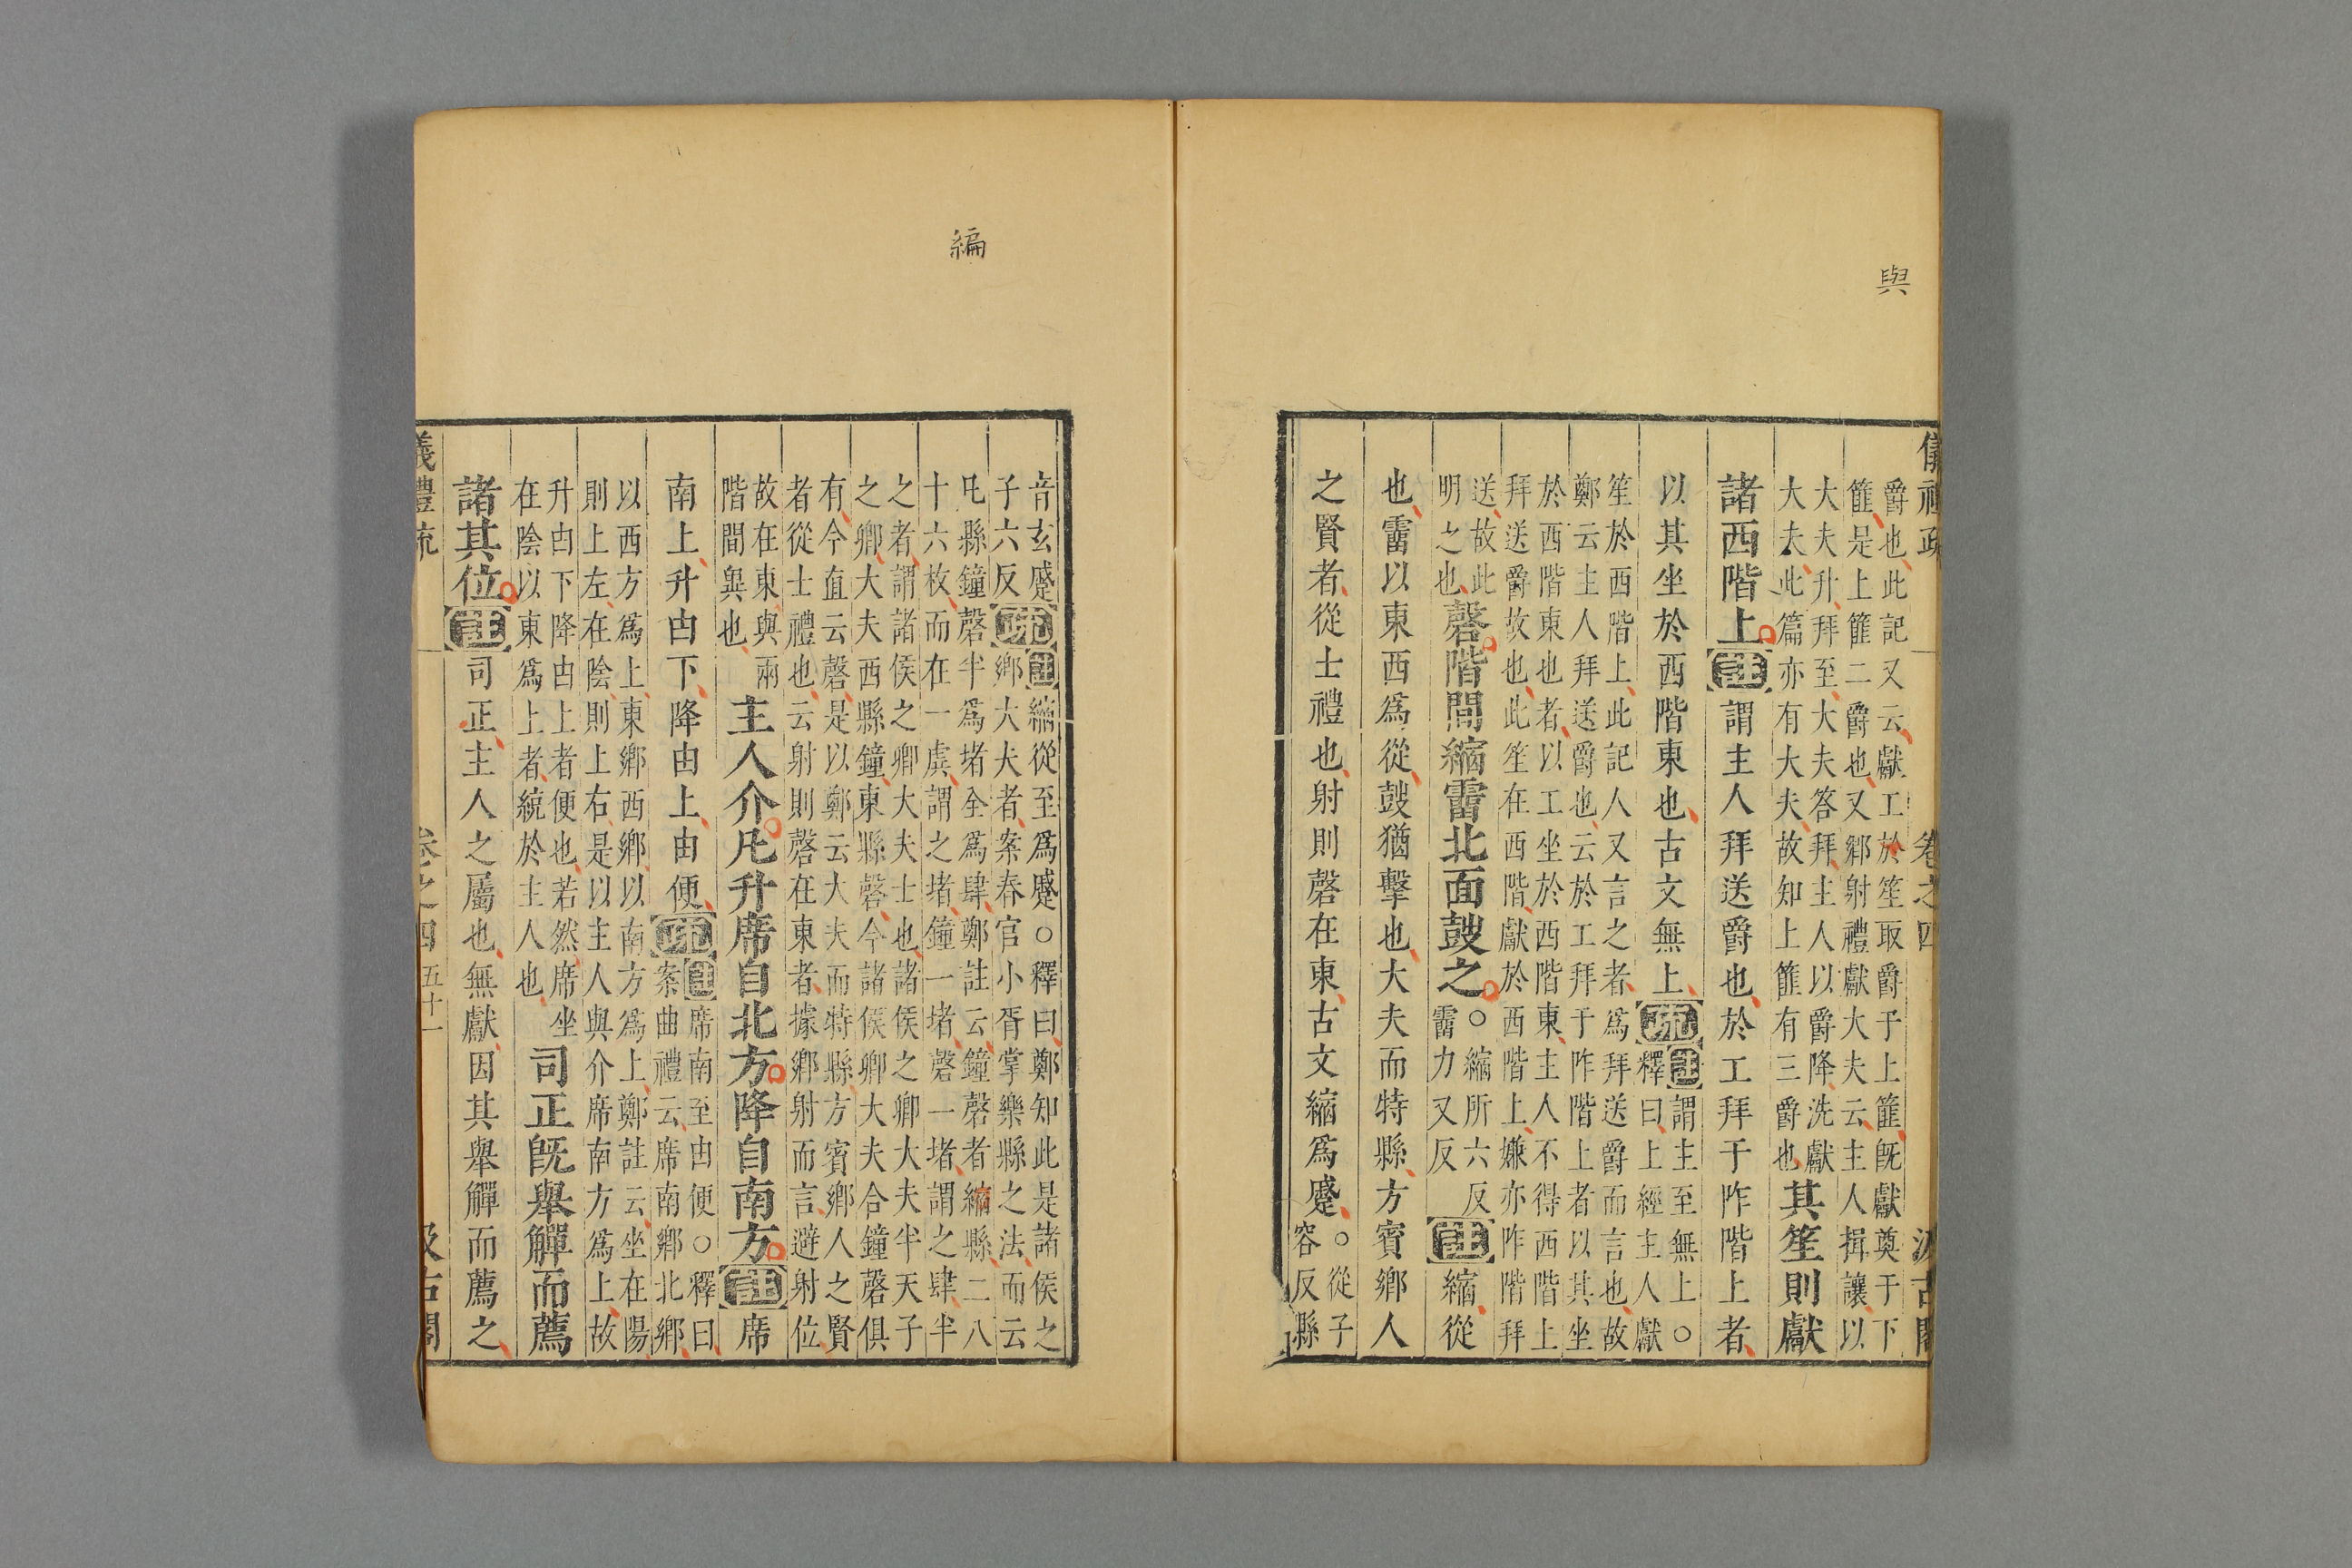 與
儀禮疏 卷之四 汲古閣
爵也此記又云獻工於笙取爵于上篚既獻奠于下
篚是上篚二爵也又鄉射禮獻大夫云主人揖讓以
大夫升拜至大夫答拜主人以爵降洗獻
大夫此篇亦有大夫故知上篚有三爵也其笙則獻
諸西階上註謂主人拜送爵也於工拜于阼階上者
以其坐於西階東也古文無上疏註謂主至無上○
釋曰上經主人獻
笙於西階上此記人又言之者為拜送爵而言也故
鄭云主人拜送爵也云於工拜于阼階上者以其坐
於西階東也者以工坐於西階東主人不得西階上
拜送爵故也此笙在西階獻於西階上嫌亦阼階拜
送故此
明之也磬階間縮霤北面鼓之○縮所六反
霤力又反註縮從
也霤以東西為從鼓猶擊也大夫而特縣方賓鄉人
之賢者從士禮也射則磬在東古文縮為蹙○從子
容反縣
編
音玄蹙
子六反疏註縮從至為蹙○釋曰鄭知此是諸侯之
鄉大夫者案春官小胥掌樂縣之法而云
凡縣鐘磬半為堵全為肆鄭註云鐘磬者縮縣二八
十六枚而在一虡謂之堵鐘一堵磬一堵謂之肆半
之者謂諸侯之卿大夫士也諸侯之卿大夫半天子
之卿大夫西縣鐘東縣磬今諸侯卿大夫合鐘磬俱
有今直云磬是以鄭云大夫而特縣方賓鄉人之賢
者從士禮也云射則磬在東者據鄉射而言避射位
故在東與兩
階間異也主人介凡升席自北方降自南方註席
南上升由下降由上由便疏註席南至由便○釋曰
案曲禮云席南鄉北鄉
以西方為上東鄉西鄉以南方為上鄭註云坐在陽
則上左在陰則上右是以主人與介席南方為上故
升由下降由上者便也若然席坐
在陰以東為上者統於主人也司正既舉觶而薦
諸其位註司正主人之屬也無獻因其舉觶而薦之
儀禮疏 卷之四 五十一 汲古閣